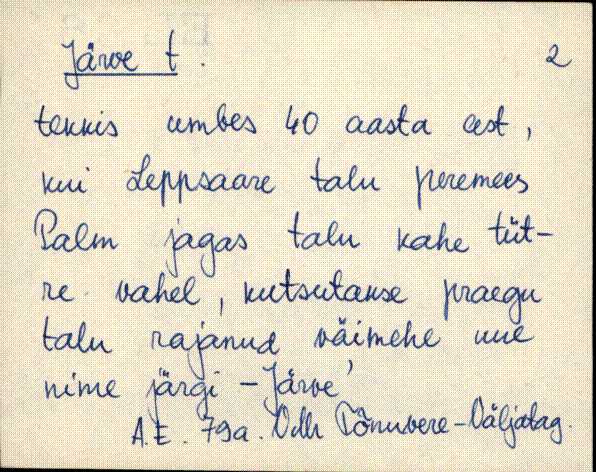 Järve t. 2
tekkis umbes 40 aasta eest,
kui Leppsaare talu peremees
Palm jagas talu kahe tüt-
re vahel, kutsutakse praegu
talu rajanud väimehe uue
nime järgi - Järve'
A.E. 79a. Vdr Tõnuvere - Väljatag.